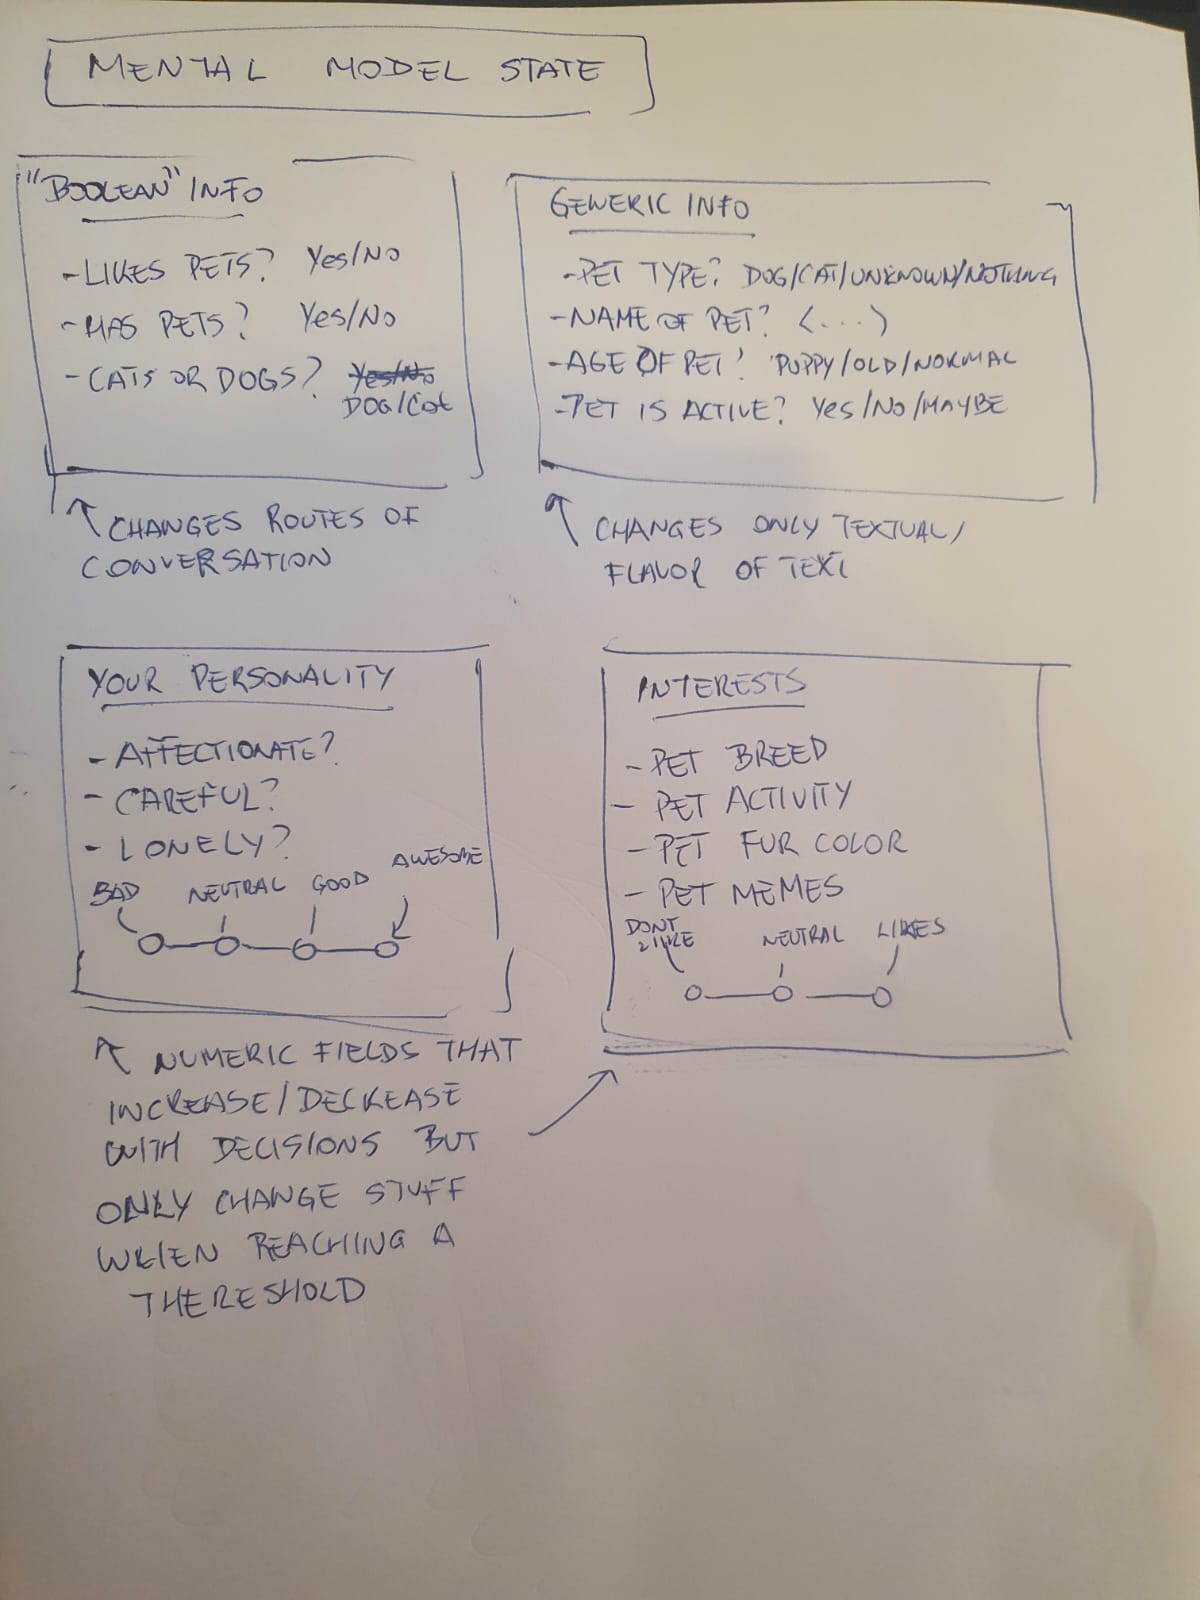 MENTAL MODEL STATE
"BOOLEAN" INFO
- LIKES PETS? Yes/No
- HAS PETS? Yes/No
- CATS OR DOGS? Yes/No
DOG/Cat
↑ CHANGES ROUTES OF
CONVERSATION
GENERIC INFO
- PET TYPE? DOG/CAT/UNKNOWN/NOTHING
- NAME OF PET? <...>
- AGE OF PET? PUPPY/OLD/NORMAL
- PET IS ACTIVE? Yes/No/MAYBE
↑ CHANGES ONLY TEXTUAL/
FLAVOR OF TEXT
YOUR PERSONALITY
- AFFECTIONATE?
- CAREFUL?
- LONELY?
BAD NEUTRAL GOOD AWESOME
↑ NUMERIC FIELDS THAT
INCREASE/DECREASE
WITH DECISIONS BUT
ONLY CHANGE STUFF
WHEN REACHING A
THERESHOLD
INTERESTS
- PET BREED
- PET ACTIVITY
- PET FUR COLOR
- PET MEMES
DONT
LIKE NEUTRAL LIKES